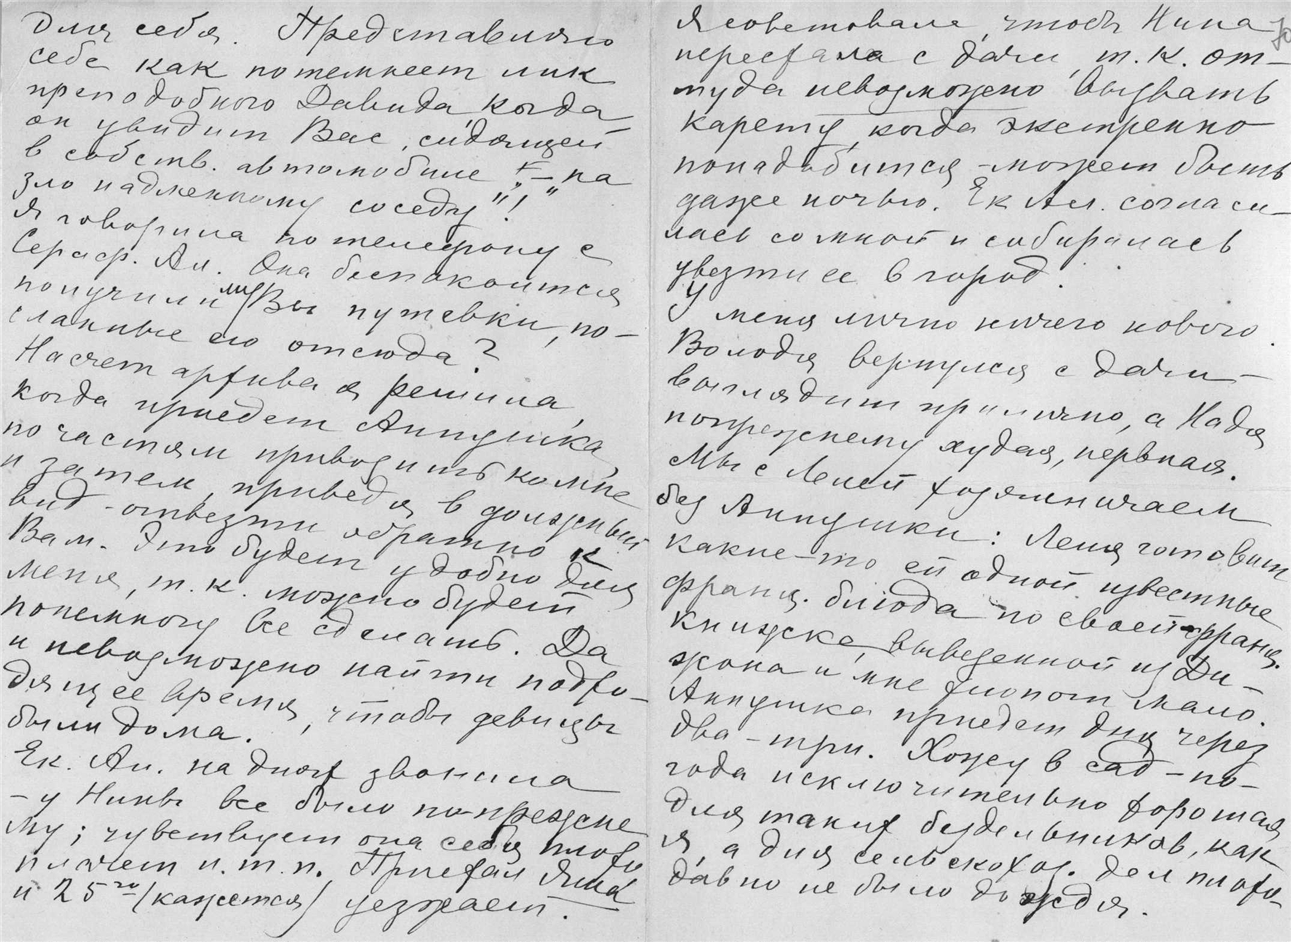 для себя. Представляю
себе как потемнеет лик
преподобного Давида, когда
он увидит Вас, сидящей
в собств. автомобиле "на
зло надменному соседу"!
Я говорила по телефону с
Сераф. Ал. Она беспокоится
получили ли Вы путевки, по-
сланные ею отсюда?
Насчет архива я решила,
когда приедет Аннушка,
по частям приводить ко мне
и затем, приведя в должный
вид - отвезти обратно к
Вам. Это будет удобно для
меня, т.к. можно будет
понемногу все сделать. Да
и невозможно найти подхо-
дящее время, чтобы девицы
были дома.
Ек. Ал. на днях звонила
- у Нины все было по прежне
му; чувствует она себя плохо
плачет и т.п. Приехал
и 25го (кажется) уезжает.
Я советовала, чтобы Нина
переехала с дачи, т.к. от-
туда невозможно вызвать
карету, когда экстренно
понадобится - может быть
даже ночью. Ек Ал. согласи-
лась со мной и собиралась
увезти ее в город.
У меня лично ничего нового.
Володя вернулся с дачи -
выглядит прилично, а Надя
попрежнему худая, нервная.
Мы с Лелей хозяйничаем
без Аннушки: Леля готовит
какие-то ей одной известные
франц. блюда по своей франц.
книжке, вывезенной из Ди-
жона и мне хлопот мало.
Аннушка приедет дня через
два-три. Хожу в сад - по-
года исключительно хорошая
для таких бездельников, как
я, а для сельскохоз. дел плохо-
давно не было дождя.